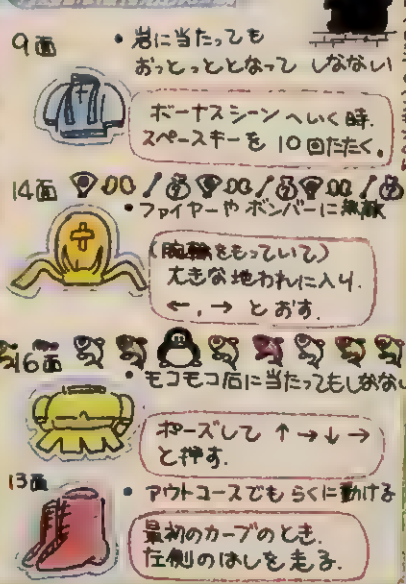 9面
・岩に当たっても
おっとっととなって しなない
ボーナスシーンへいく時.
スペースキーを 10回たたく.
14面
・ファイヤーや ボンバーに無敵
(腕輪をもっていて)
大きな地われに入り.
←,→ とおす.
16面
・モコモコ石に当たってもしなない
ポーズして ↑→↓→
と押す.
13面
・アウトコースでも らくに動ける
最初のカーブのとき.
左側のはしを走る.